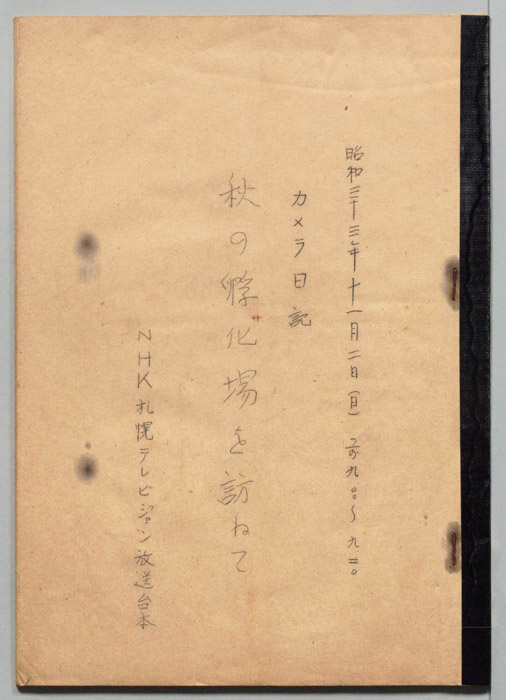 昭和三十三年十一月二日(日) 九.〇〜九.二〇
カメラ日記
秋の孵化場を訪ねて
NHK札幌テレビジョン放送台本